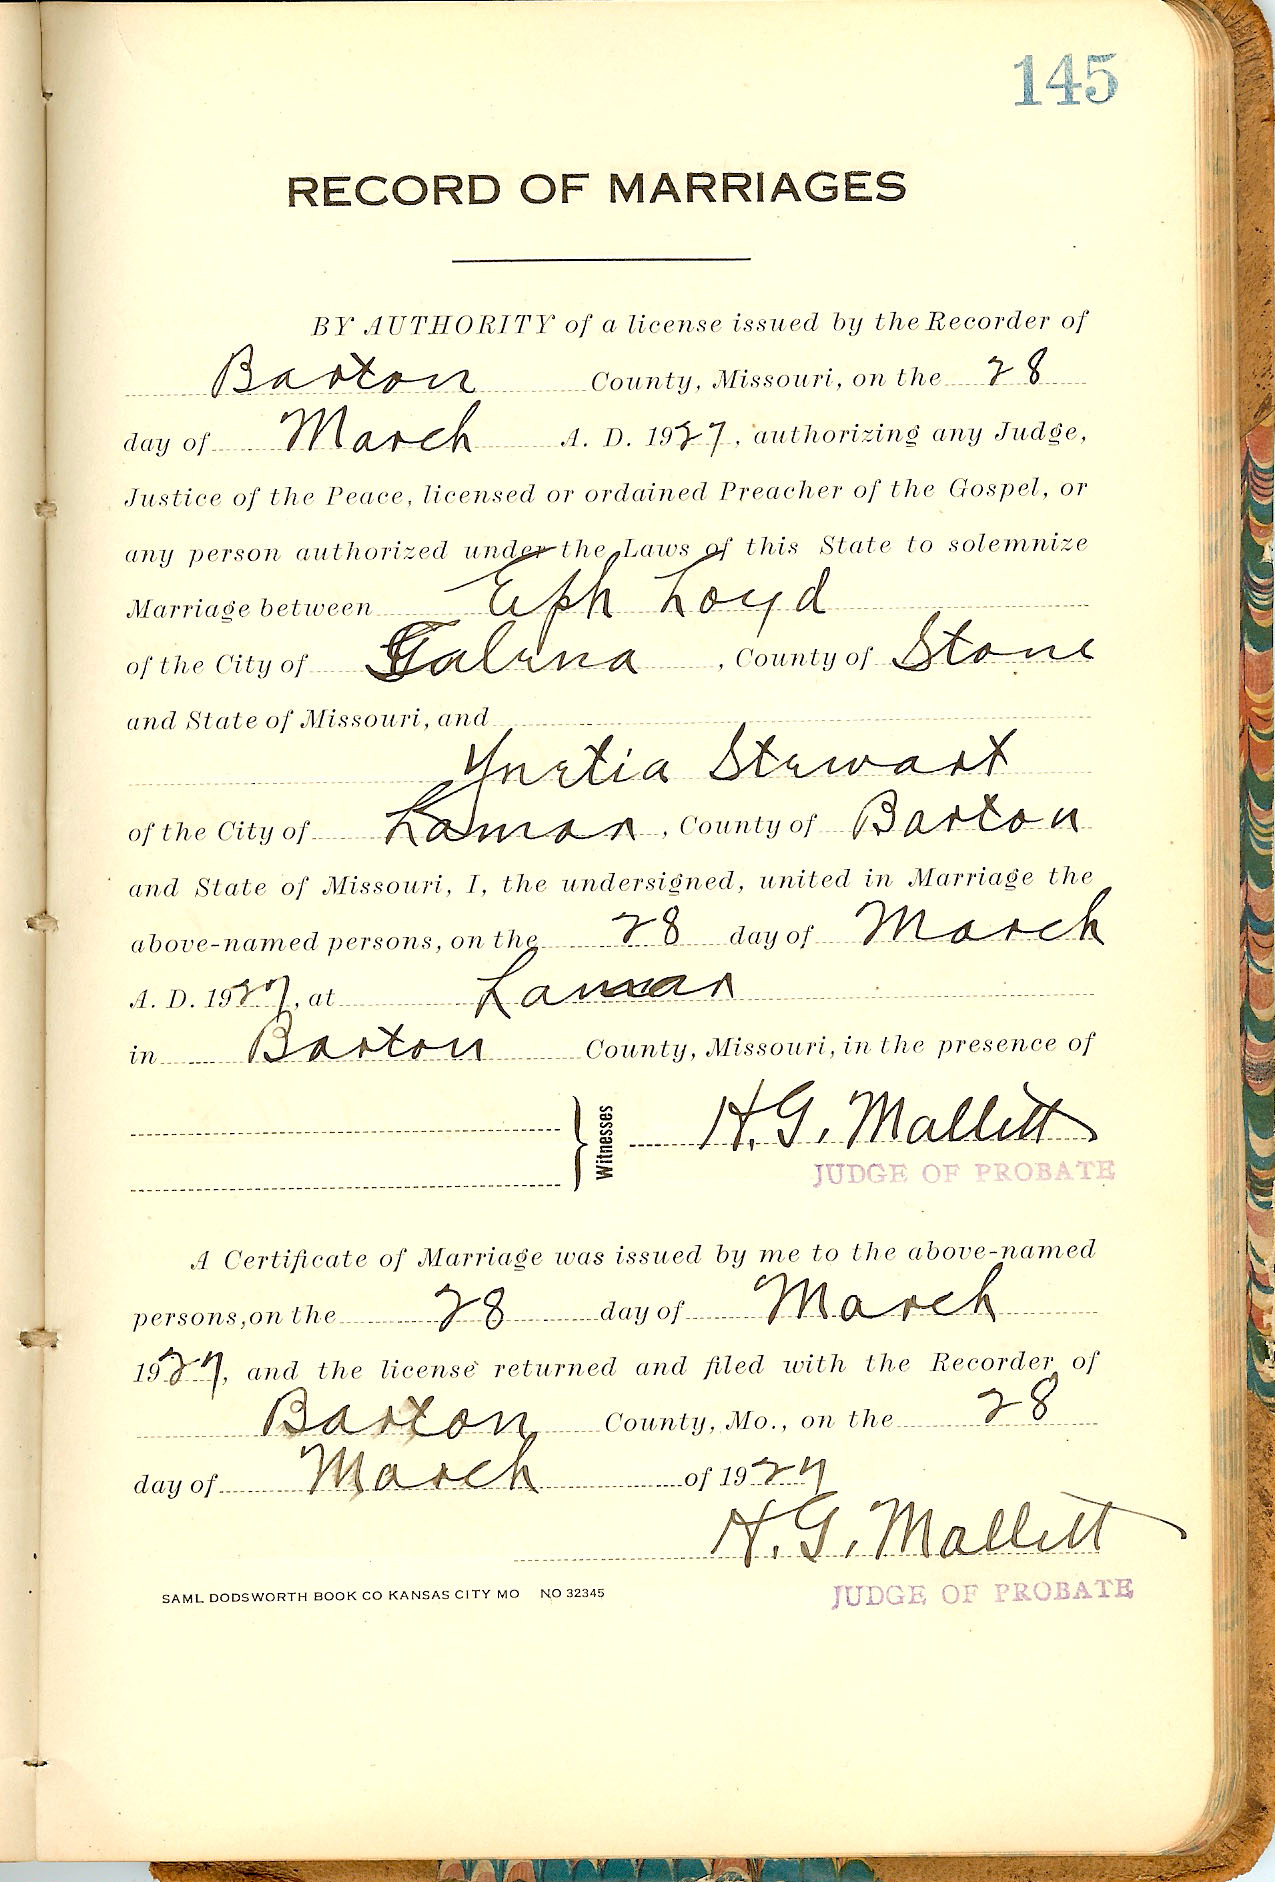 145
RECORD OF MARRIAGES
BY AUTHORITY of a license issued by the Recorder of
Barton County, Missouri, on the 28
day of March A. D. 1927, authorizing any Judge,
Justice of the Peace, licensed or ordained Preacher of the Gospel, or
any person authorized under the Laws of this State to solemnize
Marriage between Eph Loyd
of the City of Galena, County of Stone
and State of Missouri, and
Stewart
of the City of Lamar, County of Barton
and State of Missouri, I, the undersigned, united in Marriage the
above-named persons, on the 28 day of March
A. D. 1927, at Lamar
in Barton County, Missouri, in the presence of
Witnesses H. G. Mallett
JUDGE OF PROBATE
A Certificate of Marriage was issued by me to the above-named
persons, on the 28 day of March
1927, and the license returned and filed with the Recorder of
Barton County, Mo., on the 28
day of March of 1927
H. G. Mallett
JUDGE OF PROBATE
SAML DODSWORTH BOOK CO KANSAS CITY MO NO 32345